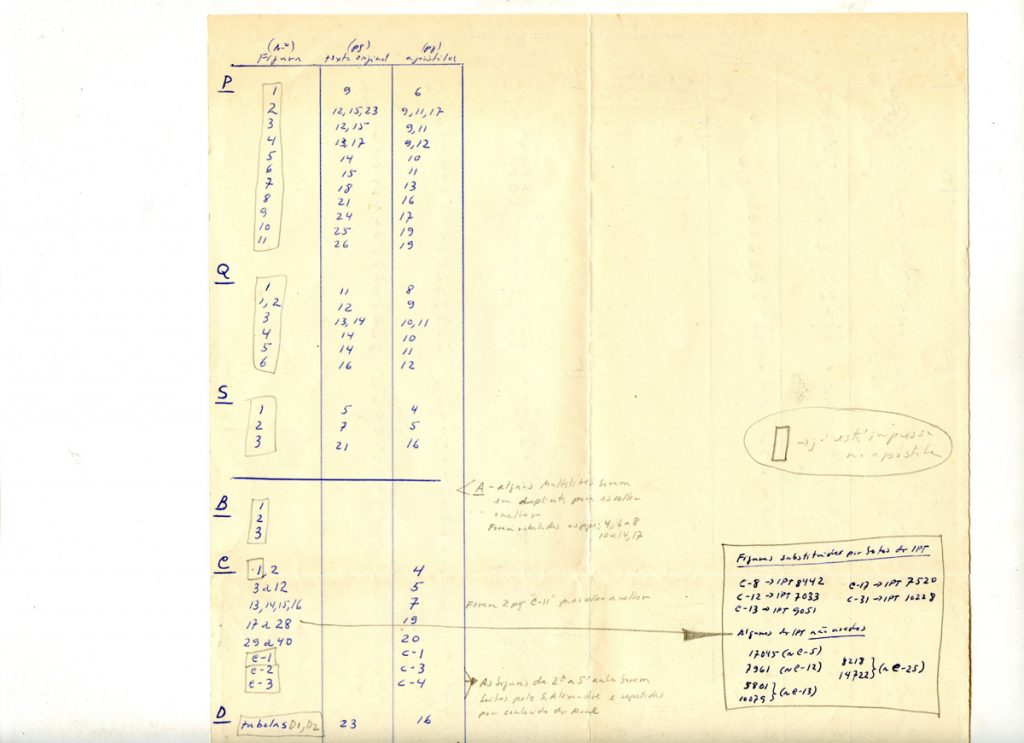 (nº) (pg) (pg)
Figura texto original apostilas
P
1 9 6
2 12,15,23 9,11,17
3 12,15 9,11
4 13,17 9,12
5 14 10
6 15 11
7 18 13
8 21 16
9 24 17
10 25 19
11 26 19
Q
1 11 8
1,2 12 9
3 13,14 10,11
4 14 10
5 14 11
6 16 12
S
1 5 4
2 7 5
3 21 16
→ já está impressa
na apostila
A - alguns Multilites foram
em duplicata para escolher
o melhor
Foram substituídas as pgs: 4, 6 a 8
10 a 14, 17
B
1
2
3
C
1, 2 4
3 a 12 5
13,14,15,16 7
Foram 2 pg "C-11" p/ escolher a melhor
17 a 28 19
29 a 40 20
C-1 C-1
C-2 C-3
C-3 C-4
As figuras da 2ª a 5ª aula foram
feitas pelo S. Alexandre e repetidas
por
D
tabelas D1, D2 23 16
Figuras substituídas por fotos do IPT
C-8 → IPT 8442 C-17 → IPT 7520
C-12 → IPT 7033 C-31 → IPT 10228
C-13 → IPT 9051
Algumas do IPT não usadas
17045 (~ C-5)
7961 (~ C-12) 8218
14722 } (~ C-25)
5801
10079 } (~ C-13)